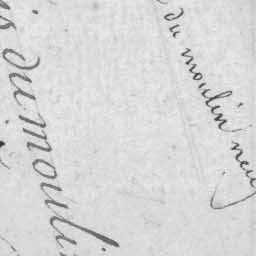 du moulin neuf
du mouli